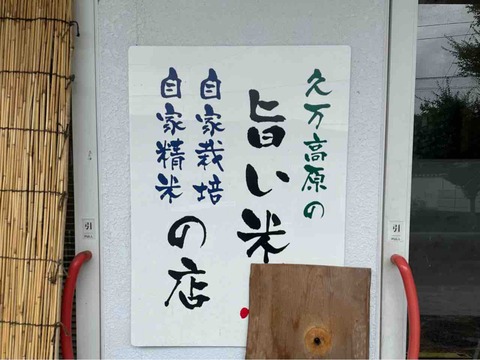 久万高原の
旨い米
自家栽培
自家精米
の店
引
引